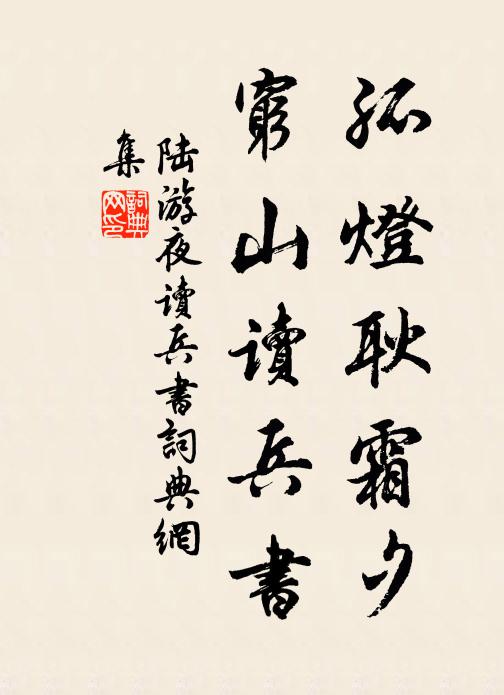 孤燈耿霜夕
窮山讀兵書
陸游夜讀兵書詞典網
集
詞典
网印